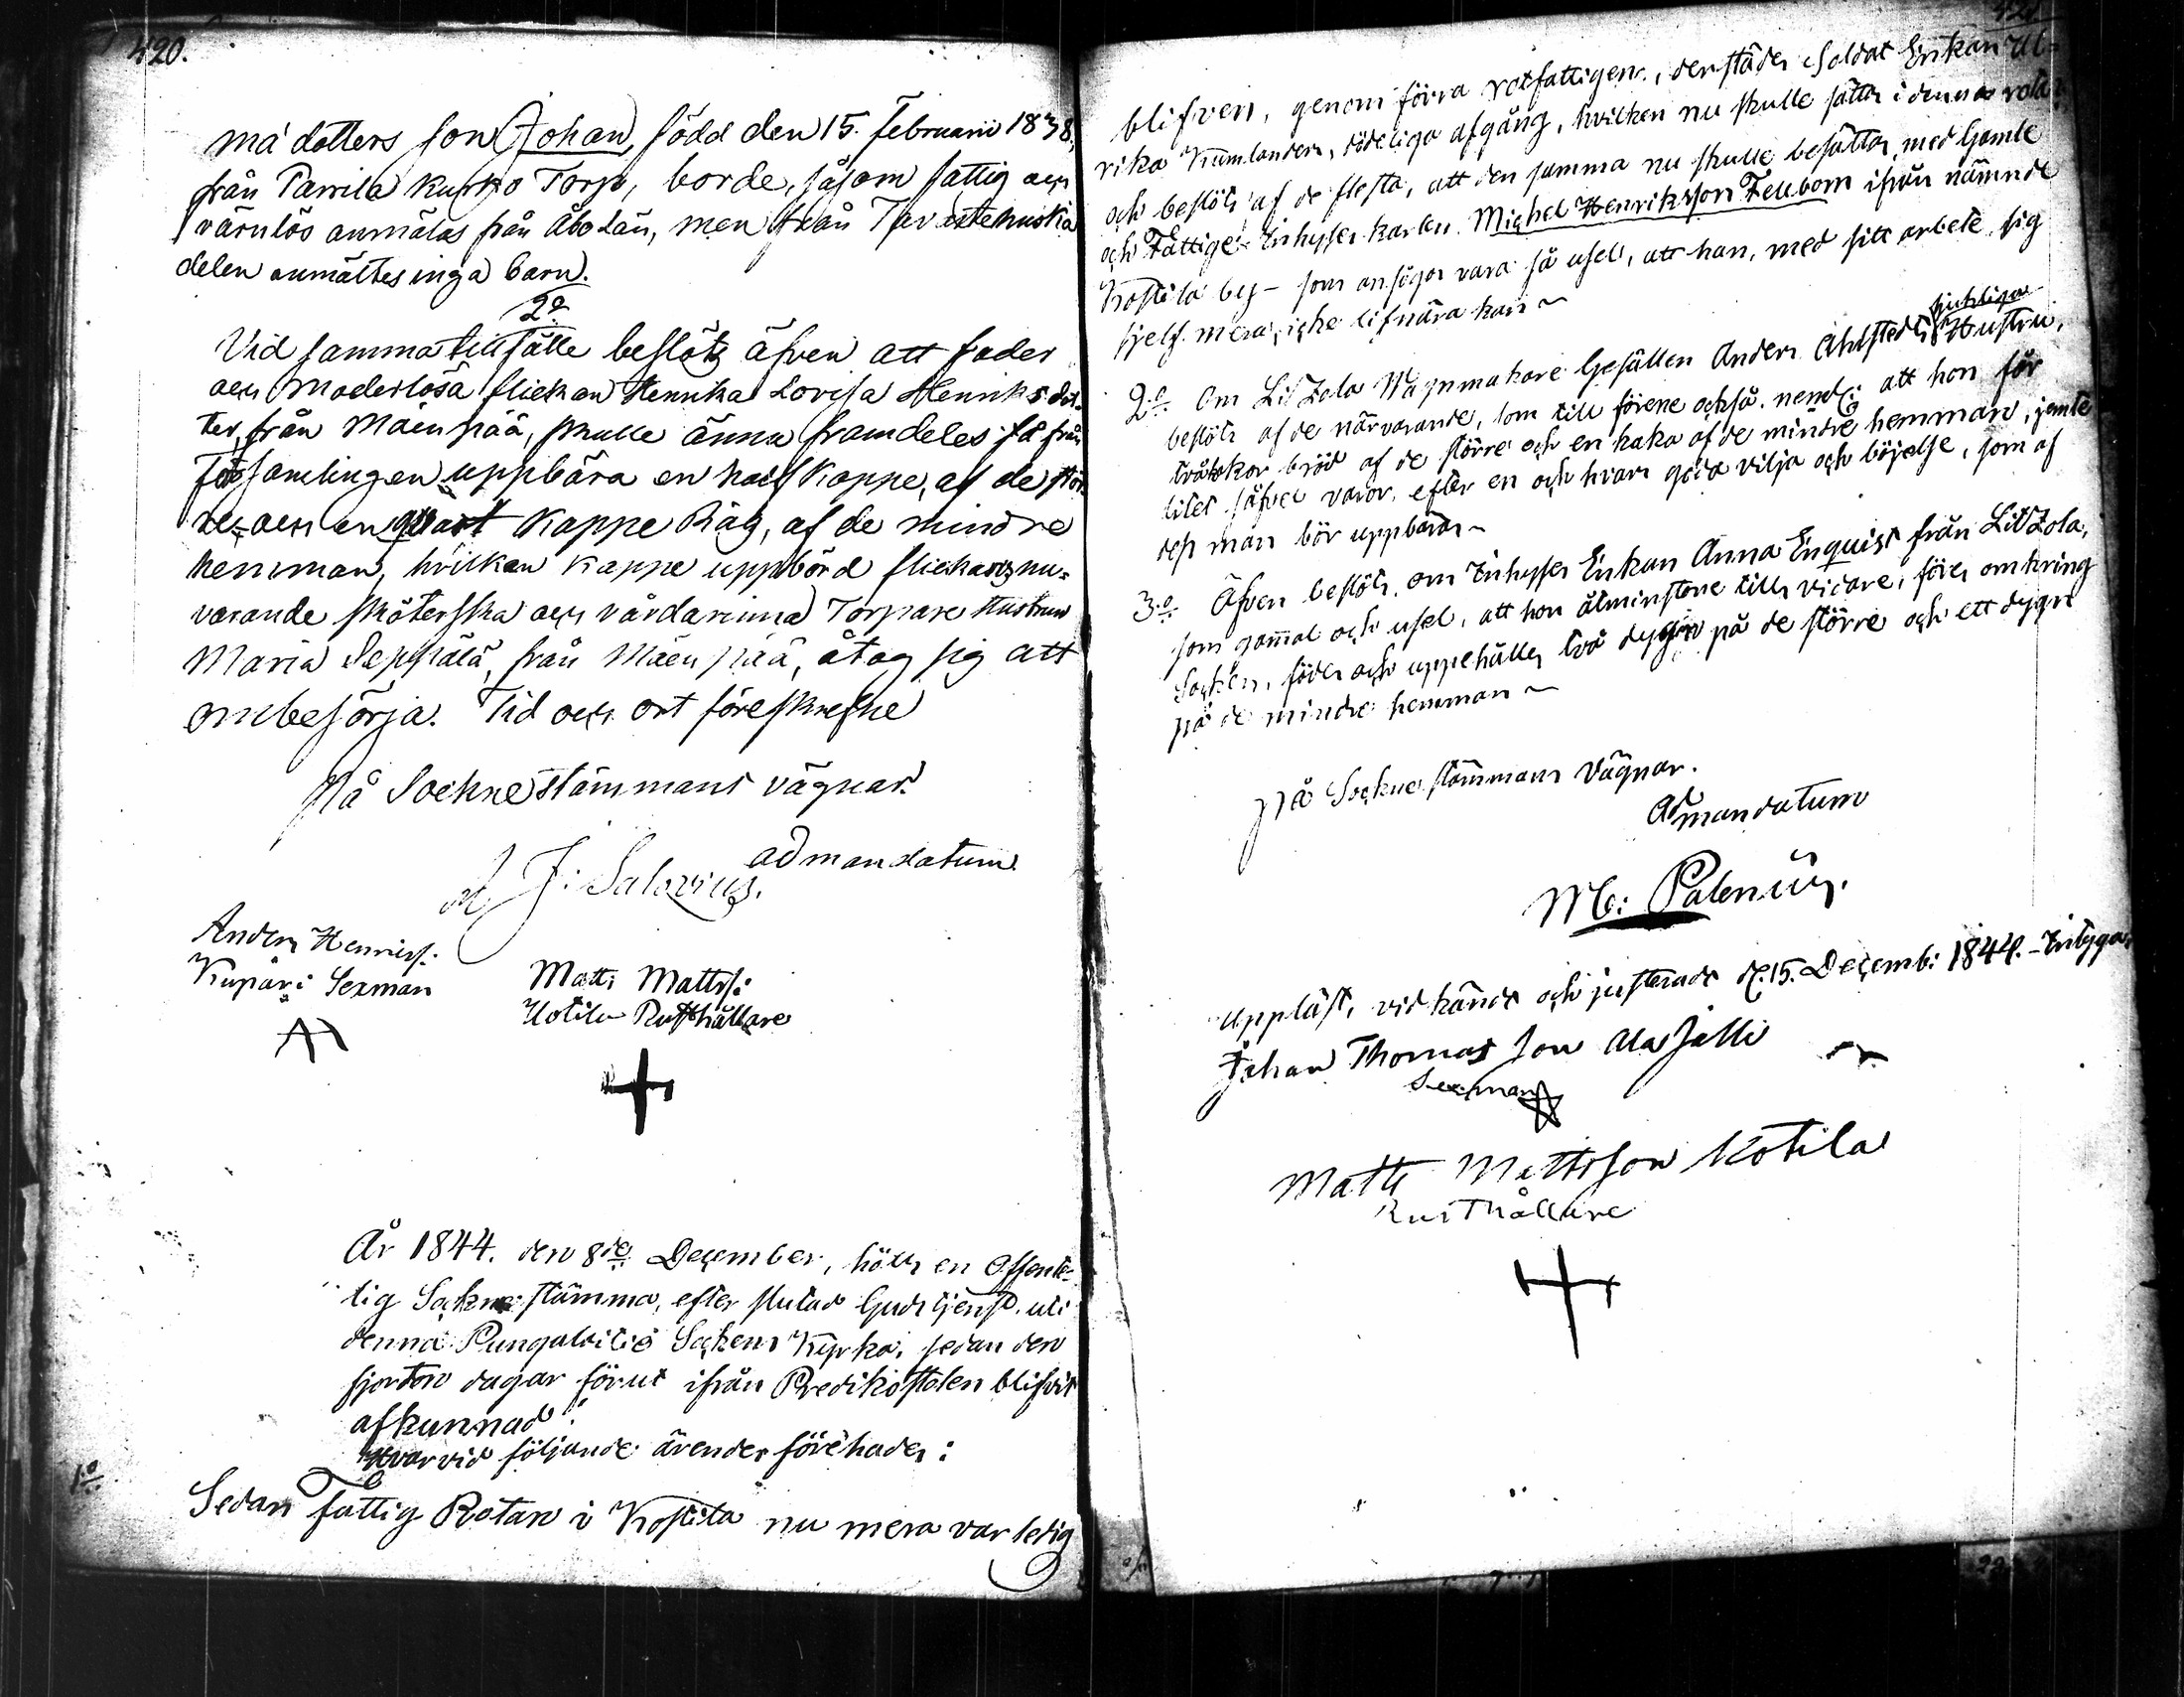 420.
må dotters son Johan, född den 15. Februarii 1838,
från Parrila Kurko Torp, borde, såsom fattig och
värnlös anmälas från Åbo Län, men från Tavastehuska
delen anmältes inga barn.
2o
Vid samma tillfälle beslöts äfven att fader
och moderlösa flickan Henrika Lovisa Henriksdot-
ter, från Mäenpää, skulle ännu framdeles få från
Församlingen uppbära en half Kappe, af de stör-
re, och en qvart Kappe Råg, af de mindre
hemman, hvilken Kappe uppbörd flickans nu-
varande sköterska och vårdarinna Torpare Hustrun
Maria Seppälä, från Mäenpää, åtog sig att
ombesörja. Tid och ort föreskrefne
På Sockne stämmans vägnar.
ad mandatum
J: Salovius.
Anders Henrics:
Kupari Sexman
Matti Matts:
Uotila Rusthållare
År 1844. den 8de December, hölls en Offent-
lig Sockne stämma, efter slutad Gudstjenst, uti
denna Pungalaitio Sockens Kyrka, sedan den
fjorton dagar förut ifrån Predikostolen blifvit
afkunnad:
Hvarvid följande ärender förehades:
1o
Sedan fattig Rotan i Kostila nu mera var ledig
421.
blifven, genom förra rotfattigens, derstädes Soldat Enkan Ul-
rika Kumlanders, dödeliga afgång, hvilken nu skulle sättas i denna rota,
och beslöts af de flesta, att den samma nu skulle besättas med Gamle
och Fattige Inhyses karlen Michel Henriksson Fellbom ifrån nämnde
Kostila by - som ansågos vara så usel, att han, med sitt arbete, sig
sjelf mera icke lifnära kan ~
2o Om Lil Zola Wagnmakare Gesällen Anders Ahlstedts sjukliga Hustru,
beslöts af de närvarande, som till förene också. neml: att hon får
två kakor bröd af de större och en kaka af de mindre hemman, jemte
litet säfvel varor, efter en och hvars goda vilja och böjelse, som af
dess man bör uppbäras ~
3o Äfven beslöts, om Inhyses Enkan Anna Enquist från Lil Zola,
som gammal och usel, att hon åtminstone tills vidare, föres omkring
Socken, födes och uppehålles två dygn på de större och ett dygn
på de mindre hemman ~
på Sockne stämmans Vägnar.
Ad mandatum
M: Palenius.
Uppläst, vidkändt och justeradt d: 15. Decemb: 1844. - Intygar
Johan Thomas son Ala Jälli
Sexman
Matti Mattsson Kotila
Rusthållare